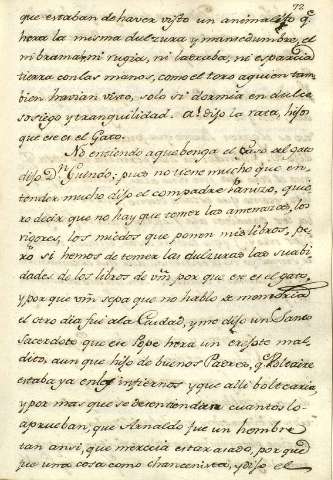 72
que estaban de haver visto un animal, dijo q.
hera la misma dulzura y mansedumbre, el
ni bramaba, ni rugia, ni labraba, ni esparcia
tierra con las manos, como el toro aquien tam-
bien havian visto, solo si dormia en dulce
sosiego y tranquilidad. A! dijo la rata, hijos
que ese es el Gato.
No entiendo aque benga el caso del gato
dijo Dn. pues no tiene mucho que en-
tender, mucho dijo el compadre quie
ro decir que no hay que temer las amenazas, los
rigores, los miedos que ponen mis libros, pe-
ro si hemos de temer las dulzuras las suabi-
dades de los libros de vm por que ese es el gato,
y por que vm sepa que no hablo de memoria
el otro dia fui ala Ciudad, y me dijo un Santo
Sacerdote que ese Pope hera un erejote mal-
dito, aun que hijo de buenos Padres, q. Bolteire
estaba ya en los infiernos y que alli boltearia
y por mas que se desentiendan cuantos lo
aprueban, que Arnaldo fue un hombre
tan ansi, que merecia estar asado, por que
fue una cosa como chancenista, y dijo el